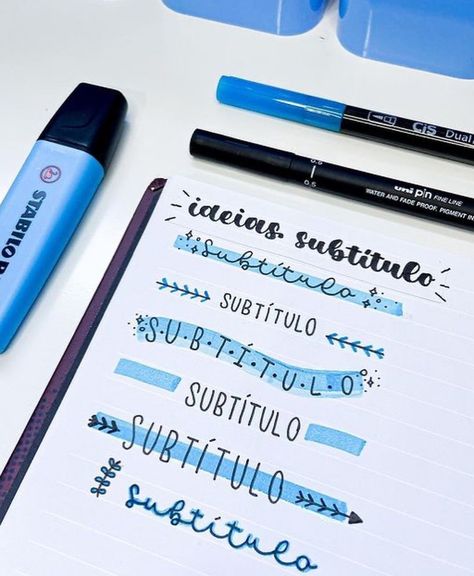 CiS Dual
0.5
0.5
uni pin FINE LINE
WATER AND FADE PROOF, PIGMENT IN
STABILO B
ideias subtítulo
Subtítulo
SUBTÍTULO
S.U.B.T.Í.T.U.L.O
SUBTÍTULO
SUBTÍTULO
subtítulo